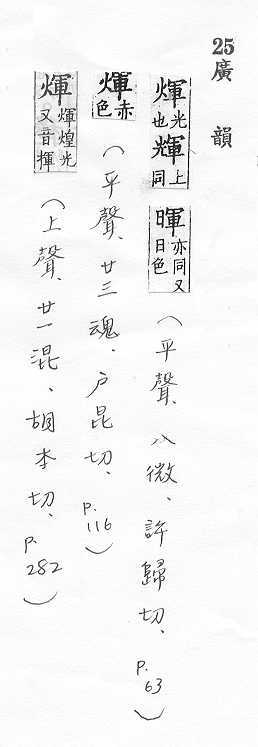 25廣韻
煇光也輝上同暉亦同又日色(平聲、八微、許歸切、P.63)
煇赤色(平聲、廿三魂、戶昆切、P.116)
煇煇煌光又音揮(上聲、廿一混、胡本切、P.282)